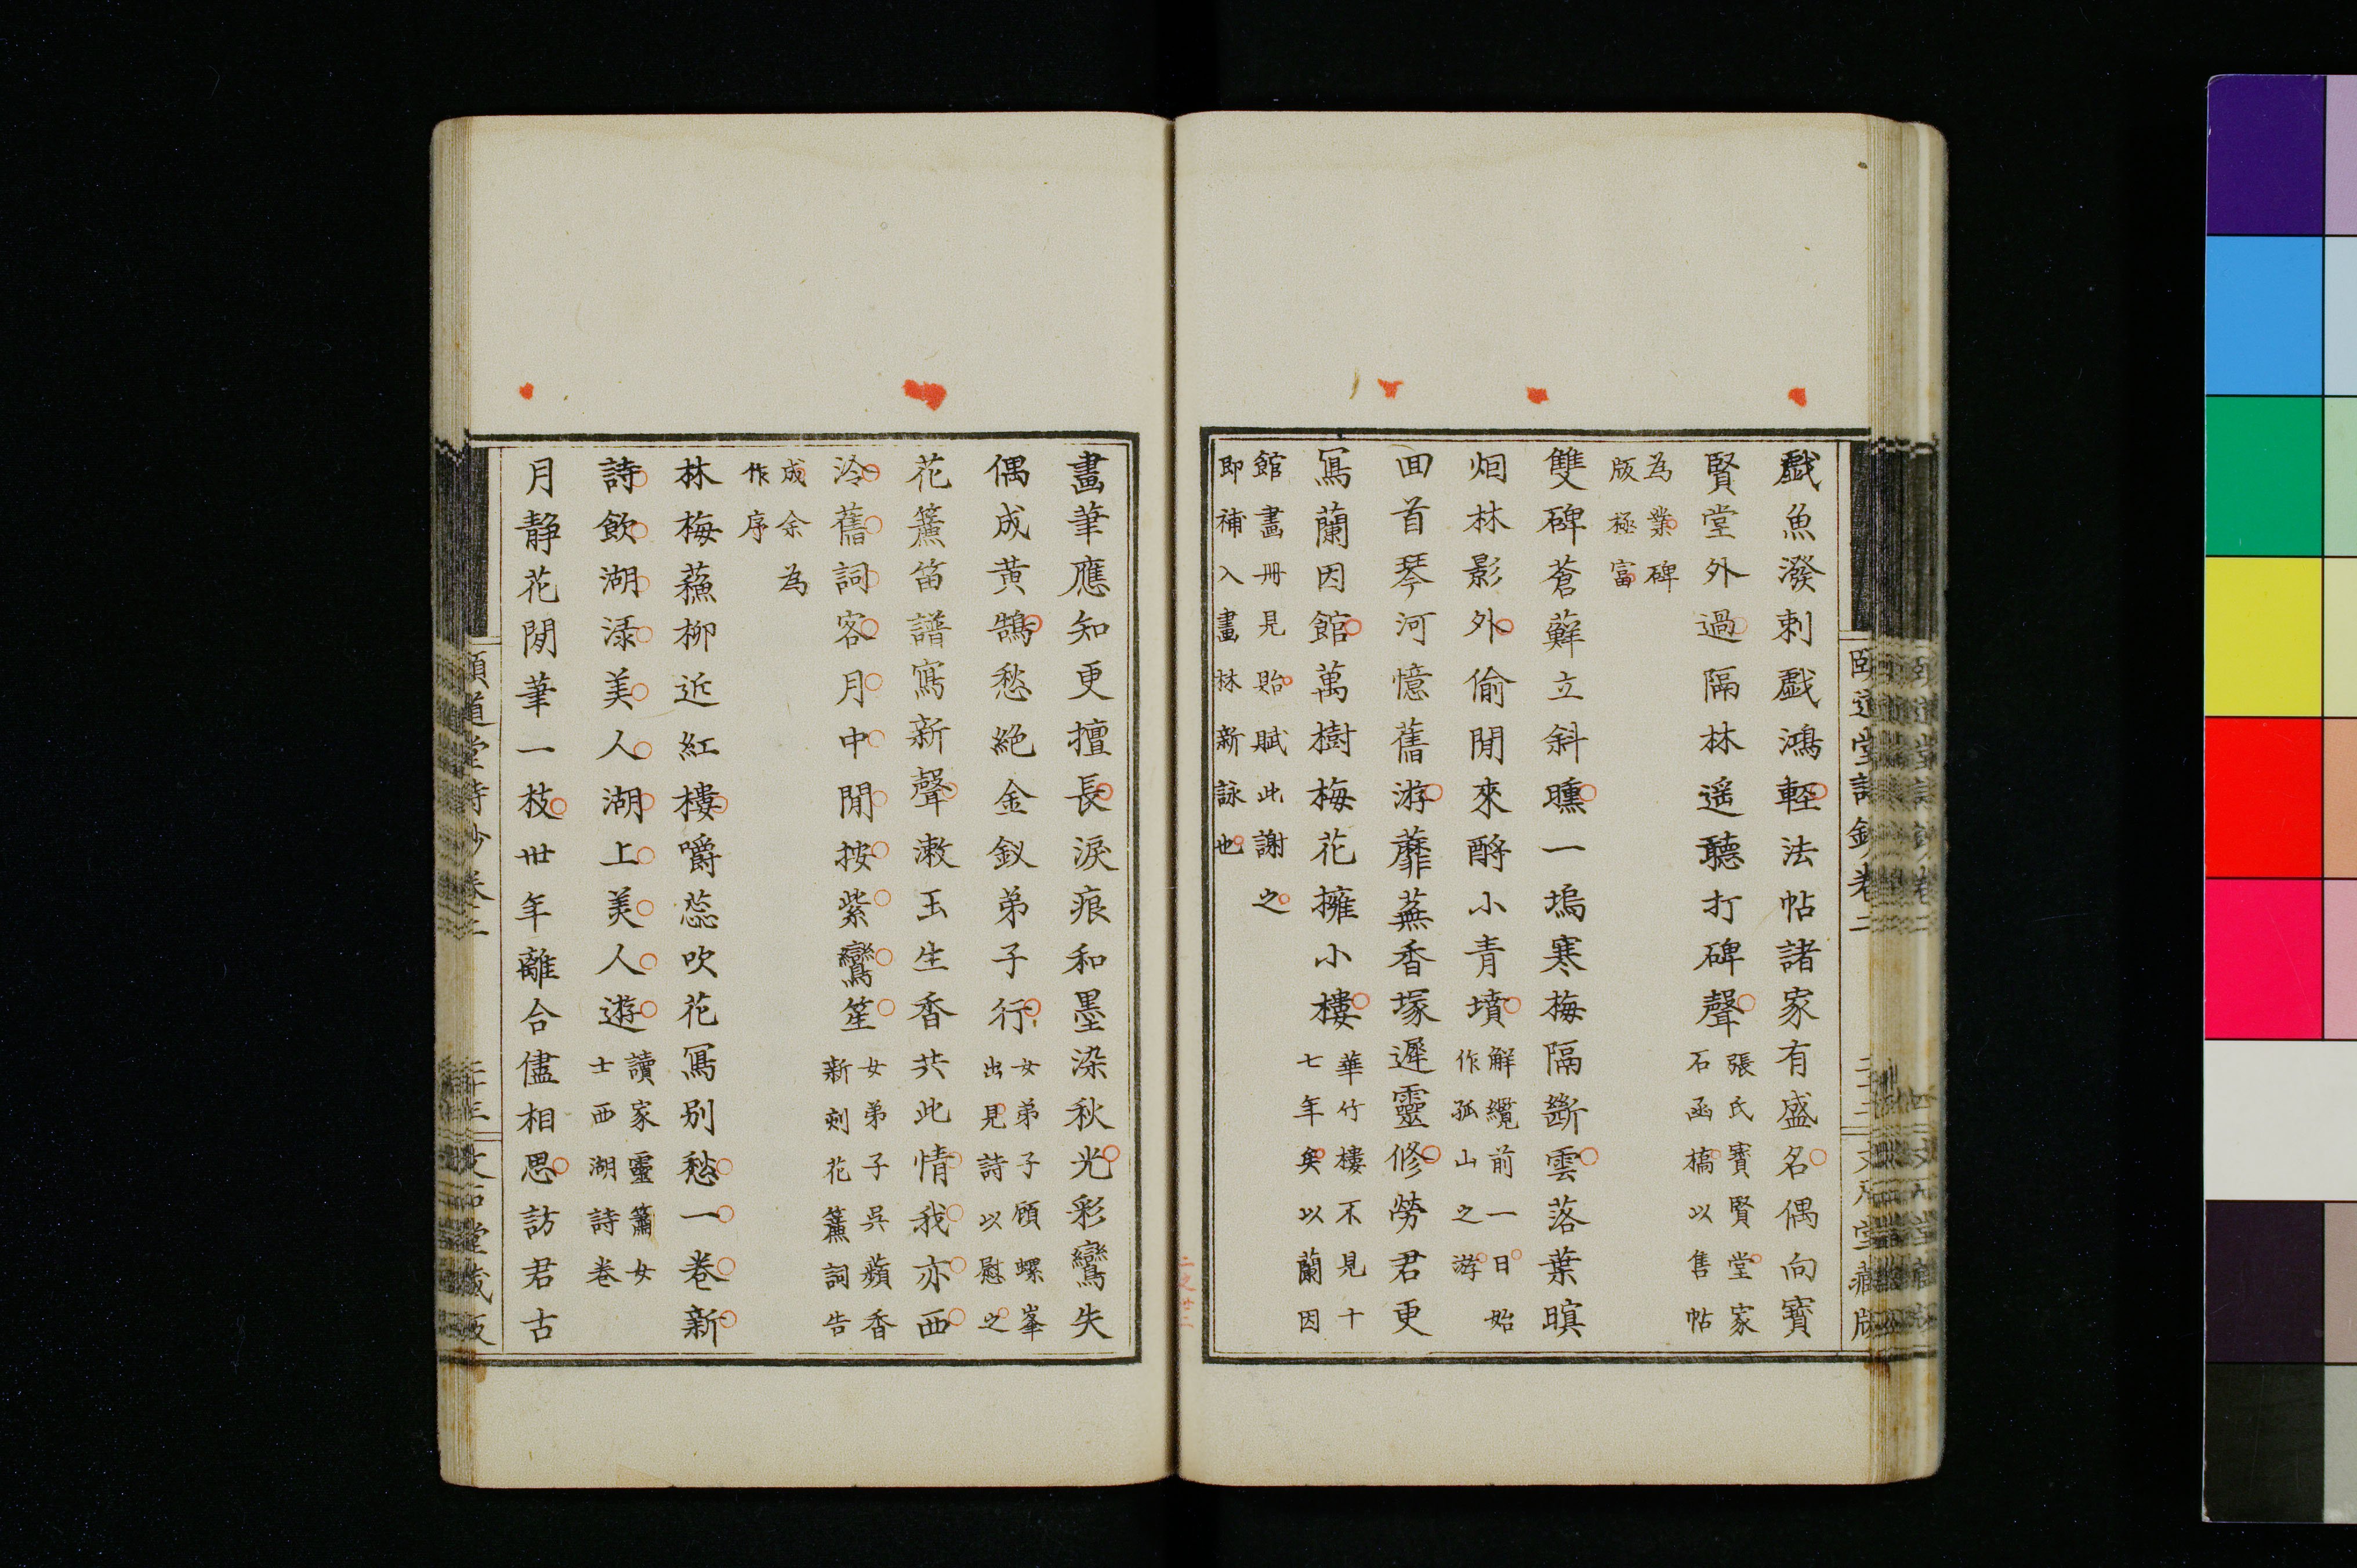 戲魚潑剌戲鴻輕法帖諸家有盛名偶向寶
賢堂外過隔林遥聽打碑聲張氏寶賢堂家
石函橋以售帖
為業碑
版極富
雙碑蒼蘚立斜曛一塢寒梅隔斷雲落葉暝
烟林影外偷閒來酹小青墳解纜前一日始
作孤山之游
回首琴河憶舊游蘼蕪香塚遲靈修勞君更
寫蘭因館萬樹梅花擁小樓華竹樓不見十
七年矣以蘭因
館畫冊見貽賦此謝之
即補入畫林新詠也
頤道堂詩鈔卷二
二十二
文石堂藏版
畫筆應知更擅長淚痕和墨染秋光彩鸞失
偶成黃鵠愁絕金釵弟子行女弟子顧螺峯
出見詩以慰之
花簾笛譜寫新聲漱玉生香共此情我亦西
泠舊詞客月中閒按紫鸞笙女弟子吳蘋香
新刻花簾詞告
成余為
作序
林梅蘓柳近紅樓嚼蕊吹花寫別愁一卷新
詩飲湖渌美人湖上美人遊讀家靈簫女
士西湖詩卷
月靜花閒筆一枝卅年離合儘相思訪君古
頤道堂詩鈔卷二
二十三
文石堂藏版